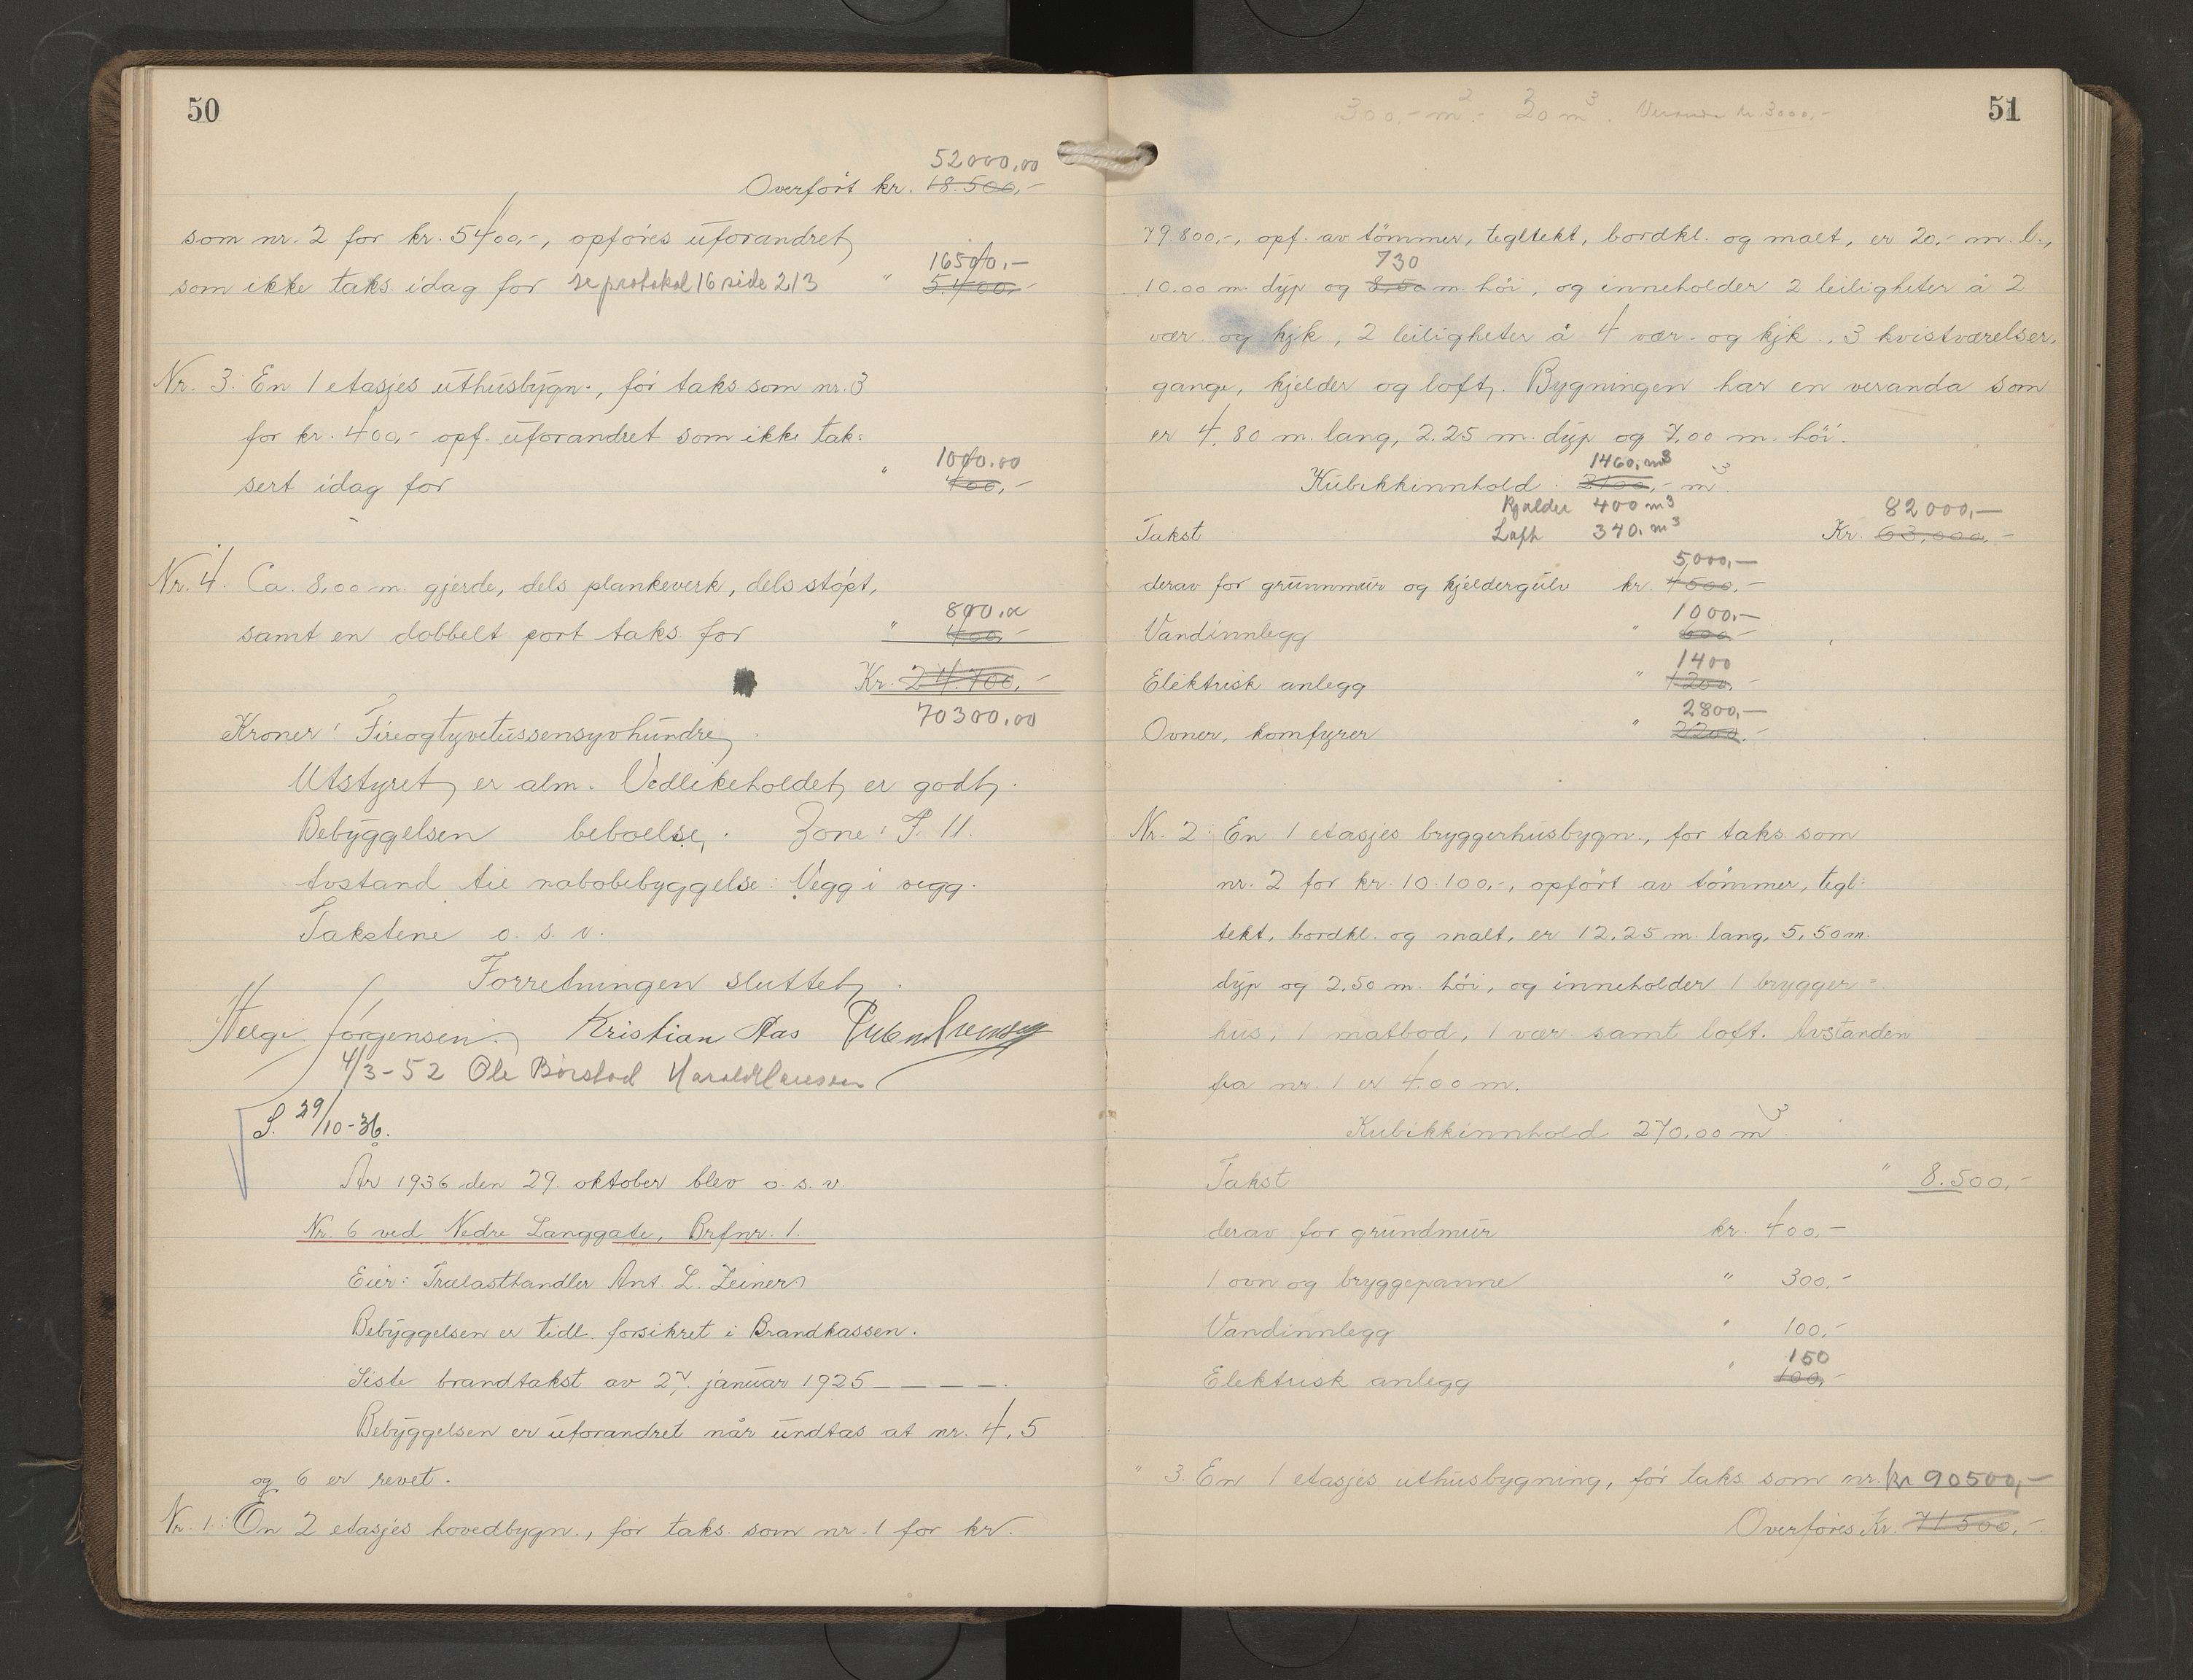 50
52000,00
Overført kr. 18.500,-
som nr. 2 for kr. 5400,-, opføres uforandret,
16500,-
som ikke taks. idag for se protokol 16 side 213 " 5.400,-
Nr. 3: En 1 etasjes uthusbygn., før taks. som nr. 3
for kr. 400,- opf. uforandret som ikke tak=
1000.00
sert idag for " 400,-
Nr. 4. Ca. 8,00 m. gjerde, dels plankeverk, dels støpt,
800.00
samt en dobbelt port taks. for " 400,-
Kr. 24.700,-
70300,00
Kroner: Fireogtyvetussensyvhundre,
Utstyret er alm. Vedlikeholdet er godt.
Bebyggelsen beboelse. Zone: F. 11.
Avstand til nabobebyggelse: Vegg i vegg.
Takstene o. s. v.
Forretningen sluttet.
Helge Jørgensen. Kristian Aas
4/3-52 Ole Børstad Harald Hansen
S. 29/10-36.
År 1936 den 29. oktober blev o. s. v.
Nr. 6 ved Nedre Langgate, Brfnr. 1.
Eier: Trælasthandler Ant. L. Zeiner
Bebyggelsen er tidl. forsikret i Brandkassen.
Siste brandtakst av 27. januar 1925 – – – –.
Bebyggelsen er uforandret når undtas at nr. 4, 5
og 6 er revet.
Nr. 1.: En 2 etasjes hovedbygn., før taks. som nr. 1 for kr.
51
300,- m2.- 20 m3. Veranda kr. 3000,-
79.800,-, opf. av tømmer, tegltekt, bordkl. og malt, er 20,- m. l.,
730
10.00 m. dyp og 8,50 m. høi, og inneholder 2 leiligheter à 2
vær. og kjk., 2 leiligheter à 4 vær. og kjk., 3 kvistværelser,
gange, kjelder og loft. Bygningen har en veranda som
er 4,80 m. lang, 2.25 m. dyp og 7,00 m. høi.
1460, m3
Kubikkinnhold: 2100,- m3.
Kjelder 400 m3
82000,-
Takst Loft 340, m3 Kr. 63,000,-
5,000,-
derav for grunnmur og kjeldergulv kr. 4500,-
1000,-
Vandinnlegg " 600,-
1400
Elektrisk anlegg " 1200,-
2800,-
Ovner, komfyrer " 2200,-
Nr. 2: En 1 etasjes bryggerhusbygn., før taks. som
nr. 2 for kr. 10.100,-, opført av tømmer, tegl=
tekt, bordkl. og malt, er 12,25 m. lang, 5,50 m.
dyp og 2,50 m. høi, og inneholder 1 brygger=
hus, 1 matbod, 1 vær. samt loft. Avstanden
fra nr. 1 er 4.00 m.
Kubikkinnhold 270.00 m3.
Takst " 8.500,-
derav for grundmur kr. 400,-
1 ovn og bryggepanne " 300,-
Vandinnlegg " 100,-
150
Elektrisk anlegg " 100,-
" 3. En 1 etasjes uthusbygning, før taks. som nr. kr 90500,-
Overføres Kr. 71.500,-